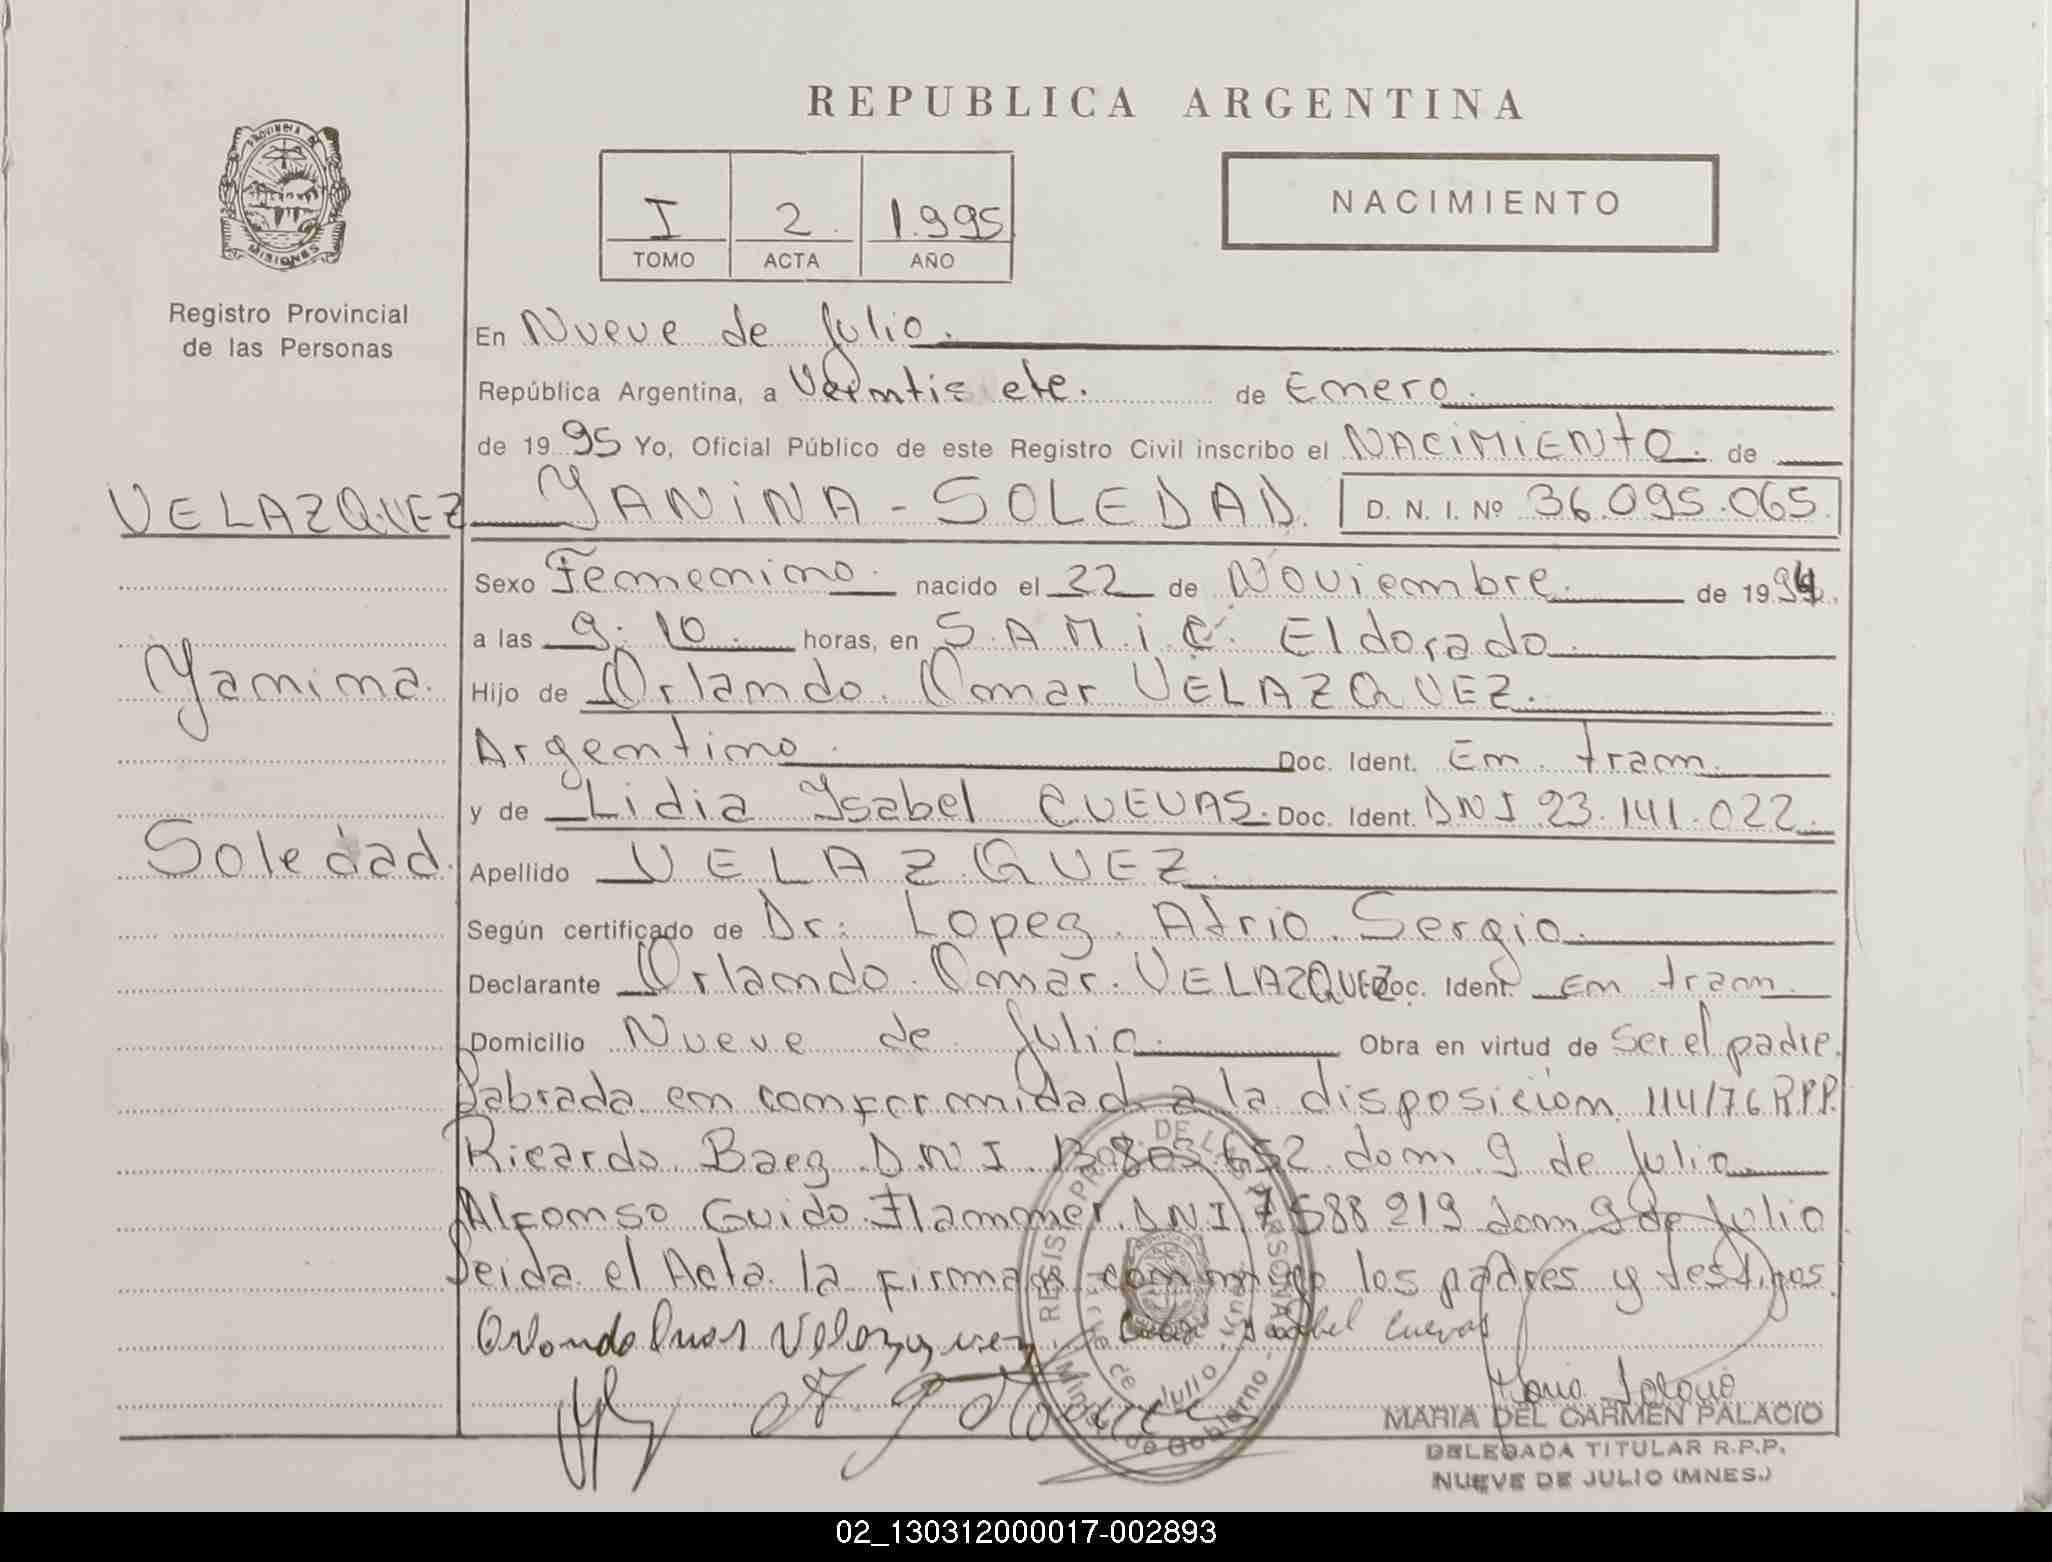 REPUBLICA ARGENTINA
PROVINCIA DE
MISIONES
Registro Provincial
de las Personas
I 2. 1.995
TOMO ACTA AÑO
NACIMIENTO
En Nueve de Julio.
República Argentina, a Veintisiete. de Enero.
de 19 95 Yo, Oficial Público de este Registro Civil inscribo el NACIMIENTO. de
VELAZQUEZ YANINA - SOLEDAD. D. N. I. Nº 36.095.065
Sexo Femenino. nacido el 22 de Noviembre. de 19 94.
a las 9:10. horas, en S.A.M.i.C. Eldorado.
Yanina. Hijo de Orlando. Omar VELAZQUEZ.
Argentino. Doc. Ident. En. tram.
y de Lidia Ysabel CUEVAS. Doc. Ident. DNI 23.141.022
Soledad. Apellido VELAZQUEZ.
Según certificado de Dr: Lopez. Atrio. Sergio.
Declarante Orlando. Omar. VELAZQUEZ Doc. Ident. En tram.
Domicilio Nueve de Julio. Obra en virtud de ser el padre.
Labrada en conformidad a la disposición 114/76 R.P.P.
Ricardo Baez D.N.I. 13.803.652 dom. 9 de Julio
Alfonso Guido Flammer. DNI 7588 219 dom 9 de Julio
Leida el Acta la firman conmigo los padres y testigos.
Orlando Omar Velazquez Isabel Cuevas
MARIA DEL CARMEN PALACIO
DELEGADA TITULAR R.P.P.
NUEVE DE JULIO (MNES.)
02_130312000017-002893